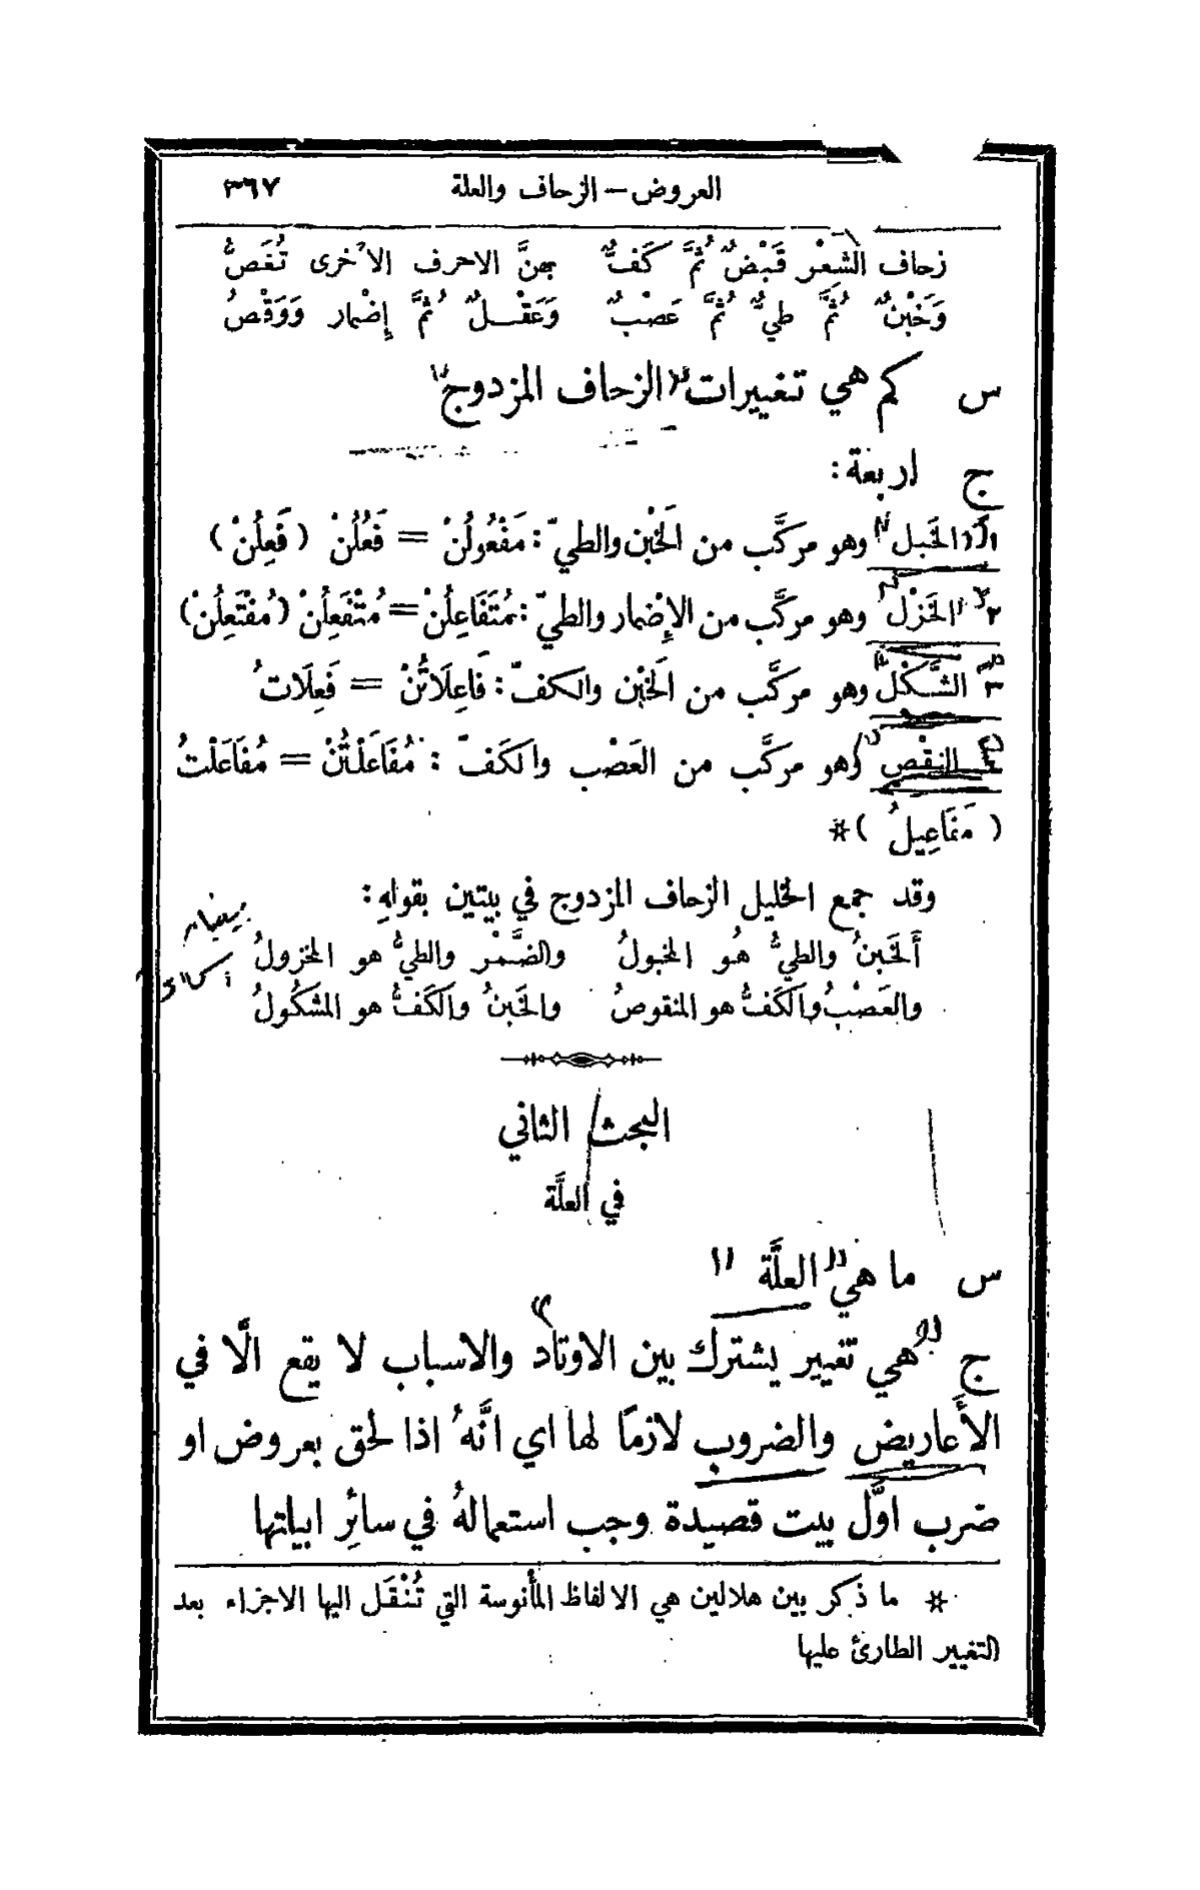 العروض – الزحاف والعلة ٣٦٧
زحاف الشِعْر قَبْضٌ ثُمَّ كَفٌّ بهنَّ الاحرف الاُخرى تُغَصُّ
وَخَبْنٌ ثُمَّ طيٌّ ثُمَّ عَصْبٌ وَعَقْلٌ ثُمَّ إِضْمار وَوَقْصُ
س كم هي تغييرات الزحاف المزدوج
ج اربعة :
١ الخَبل وهو مركَّب من الخَبْن والطيّ : مَفْعُولُنْ = فَعُلُنْ (فَعِلُنْ)
٢ الخَزْل وهو مركَّب من الإِضْمار والطيّ : مُتَفَاعِلُنْ = مُتْفَعِلُنْ (مُفْتَعِلُنْ)
٣ الشَّكْل وهو مركَّب من الخَبْن والكفّ : فَاعِلَاتُنْ = فَعِلَاتُ
٤ النقْص وهو مركَّب من العَصْب والكَفّ : مُفَاعَلْتُنْ = مُفَاعَلْتُ
( مَفَاعِيلُ )*
وقد جمع الخليل الزحاف المزدوج في بيتين بقولهِ :
أَلخَبنُ والطيُّ هُو المخبولُ والضَّمْر والطيُّ هو المخزولُ
والعَصْبُ والكَفُّ هو المنقوصُ والخَبنُ والكَفُّ هو المشكُولُ
البحث الثاني
في العلَّة
س ما هي العلَّة
ج هي تغيير يشترك بين الاوتاد والاسباب لا يقع الَّا في
الأَعاريض والضروب لازمًا لها اي انَّهُ اذا لحق بعروض او
ضرب اوَّل بيت قصيدة وجب استعمالهُ في سائِر ابياتها
* ما ذكر بين هلالين هي الالفاظ المأْنوسة التي تُنْقَل اليها الاجزاء بعد
التغيير الطارئ عليها